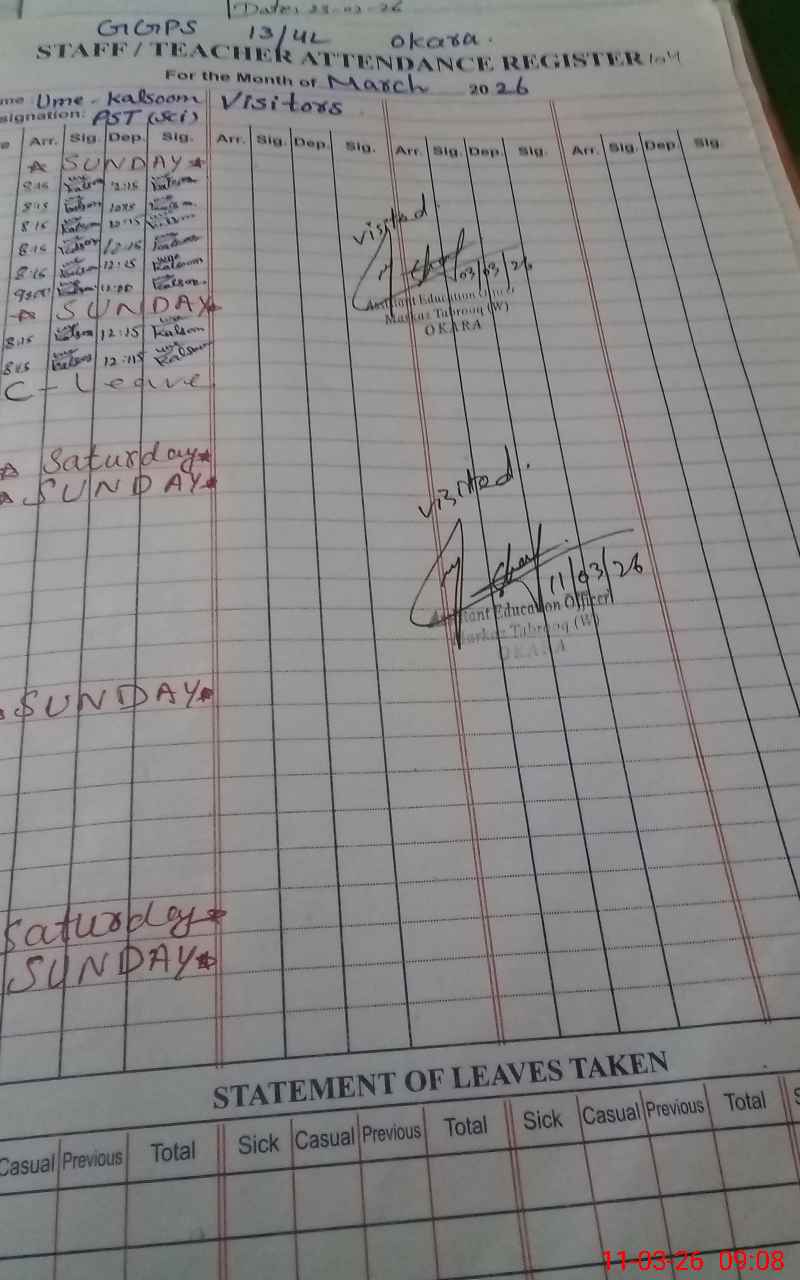 Date: 28-02-26
GGPS 13/4L Okara.
STAFF / TEACHER ATTENDANCE REGISTER
For the Month of March 2026
me Ume-Kalsoom Visitors
signation: PST (Sci)
Arr. Sig. Dep. Sig. Arr. Sig. Dep. Sig. Arr. Sig. Dep. Sig. Arr. Sig. Dep. Sig.
SUNDAY
8:15 Kalsoom 12:15 Kalsoom
8:15
8:15 Kalsoom
8:15
8:15 Kalsoom 12:15 Kalsoom
12:00
SUNDAY
8:15 12:15 Kalsoom
8:15 Kalsoom 12:15 Kalsoom
C - Leave
Saturday
SUNDAY
SUNDAY
Saturday
SUNDAY
visited
03/03/26
Assistant Education Officer
Markaz Tabrooq (W)
OKARA
visited.
11/03/26
Assistant Education Officer
Markaz Tabrooq (W)
OKARA
STATEMENT OF LEAVES TAKEN
Casual Previous Total Sick Casual Previous Total Sick Casual Previous Total S
11-03-26 09:08